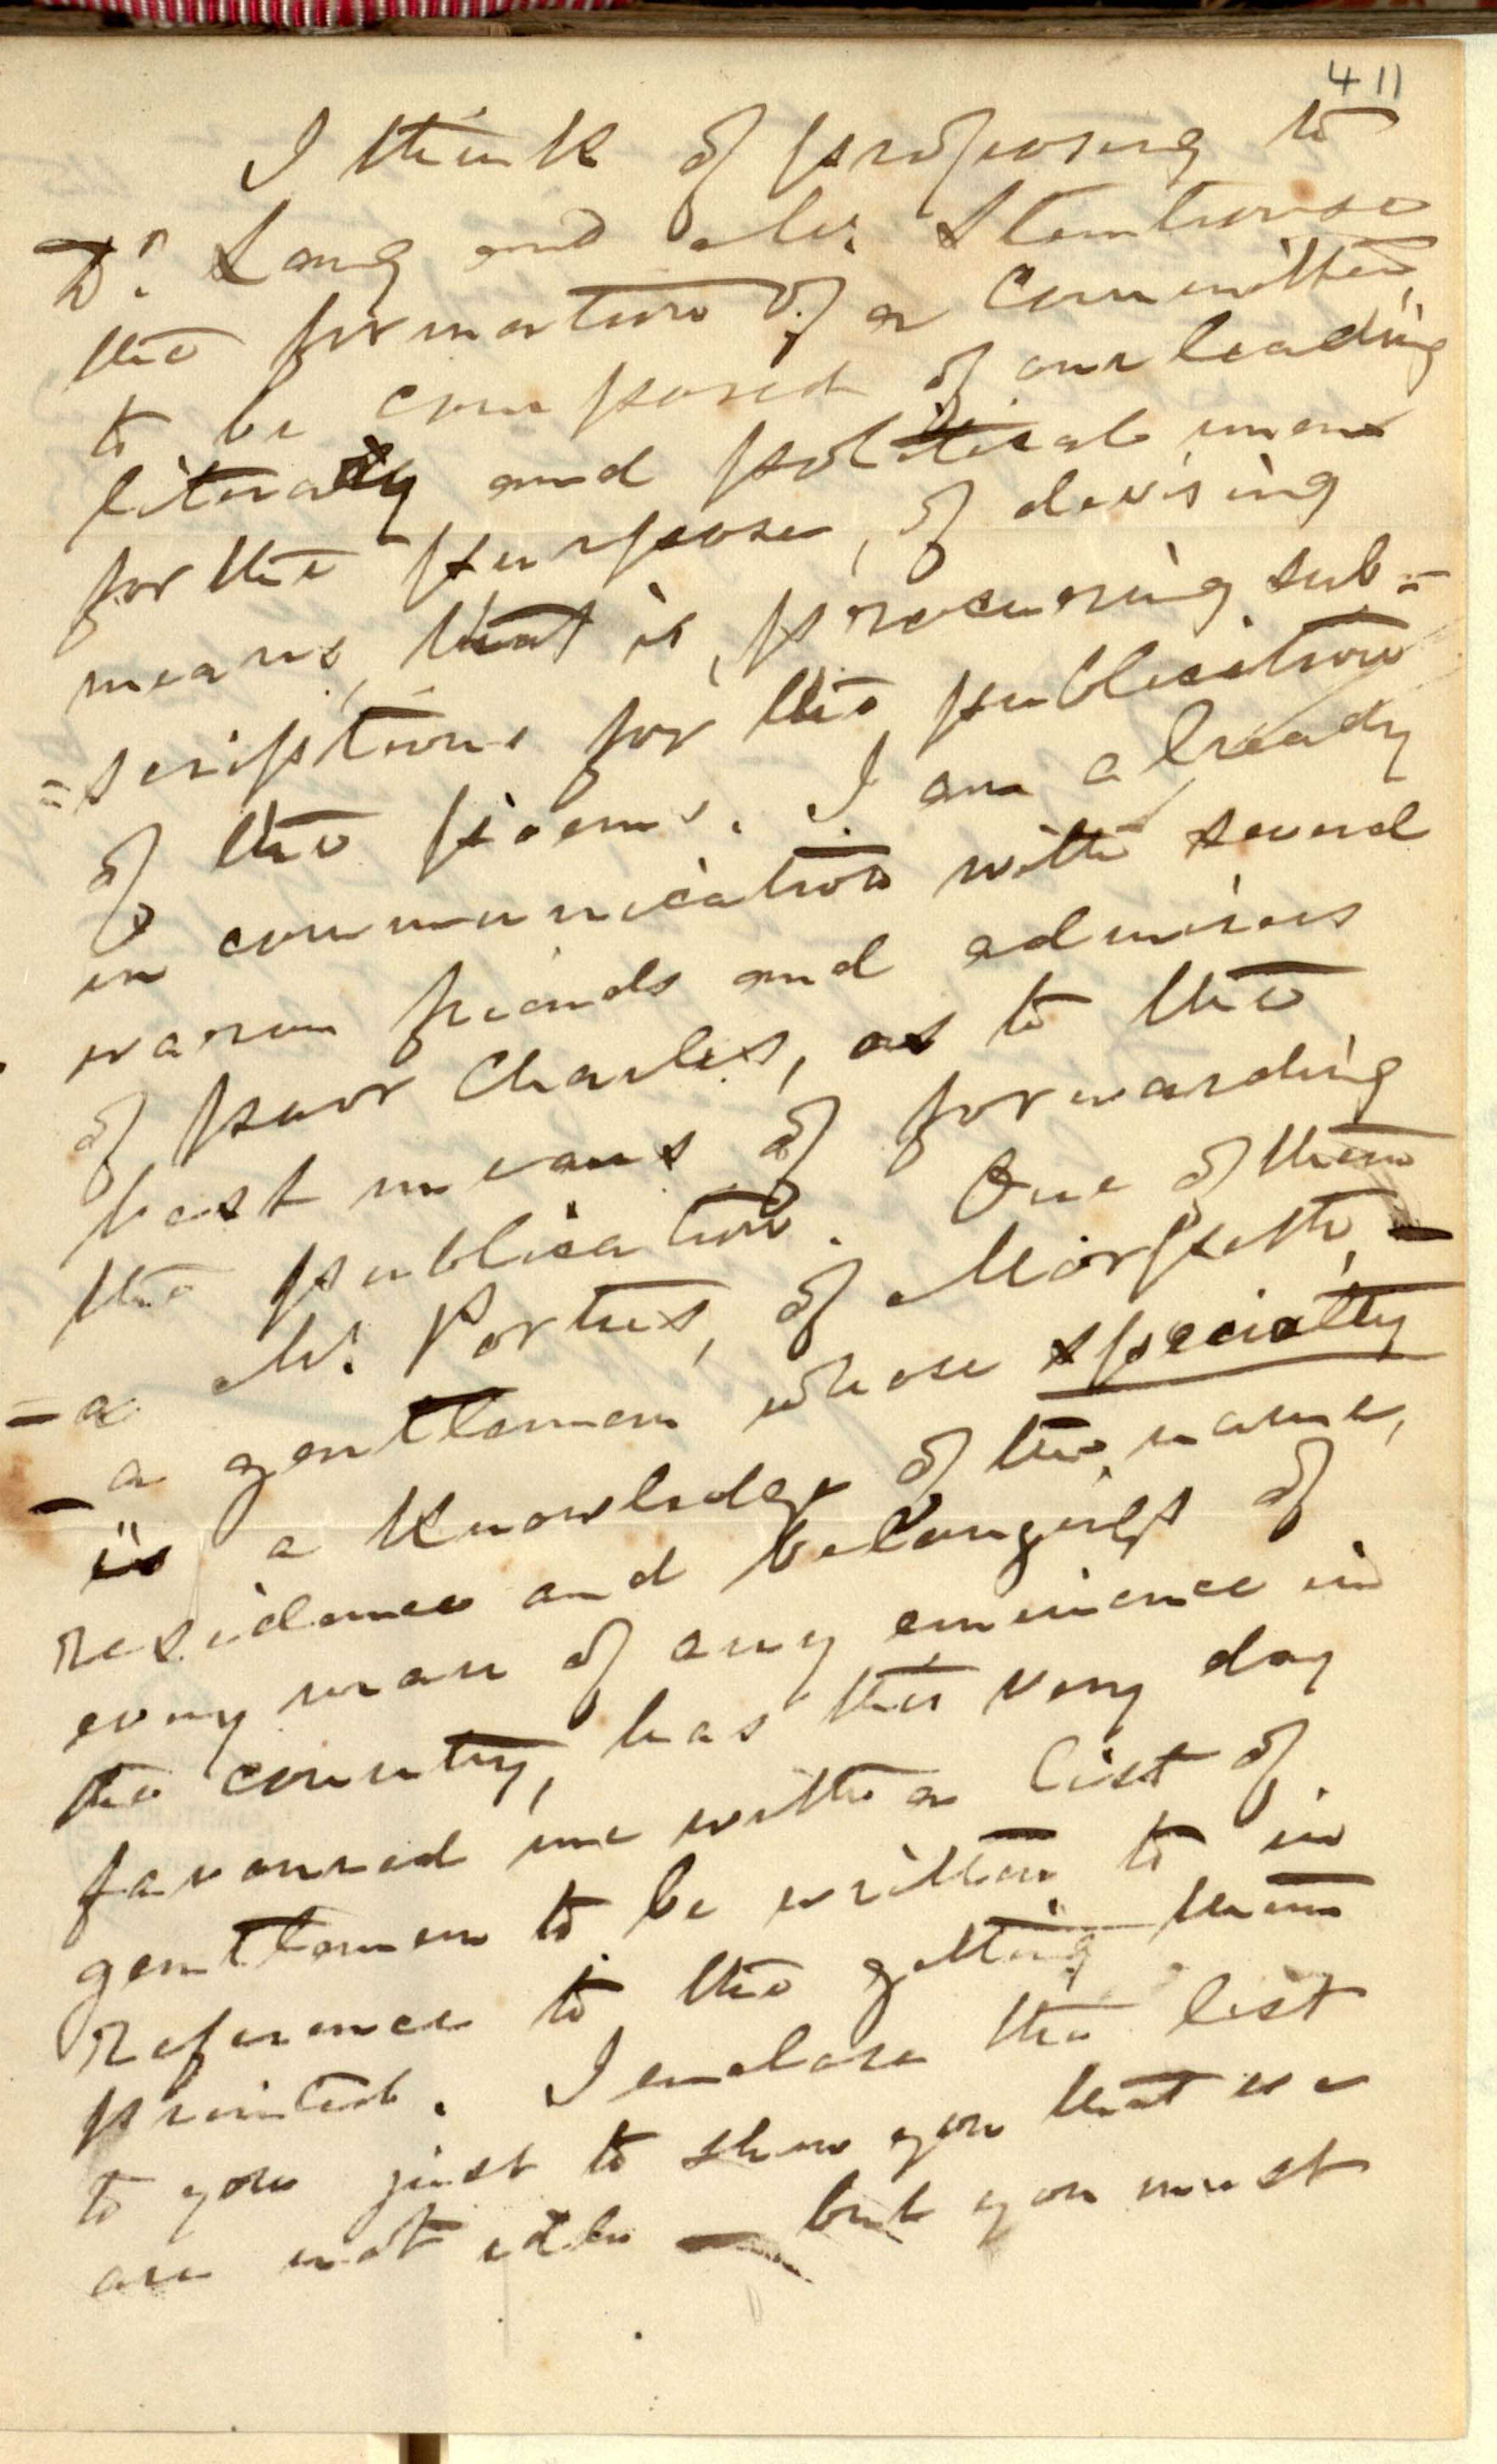 411
I think of proposing to
Dr. Lang and Mr. Stenhouse
the formation of a Committee,
to be composed of our leading
literary and political men
for the purpose, of devising
means, that is, procuring sub=
=scriptions for the publication
of the poems. I am already
in communication with several
warm friends and admirers
of poor Charles, as to the
best means of forwarding
the publication. One of them
– a Mr. Portus, of Morpeth, –
a gentleman whose specialty
– is a knowledge of the name,
residence and belongings of
every man of any eminence in
the country, has this very day
favoured me with a list of
gentlemen to be written to in
reference to the getting them
printed. I enclose the list
to you just to show you that we
are not idle — but you must